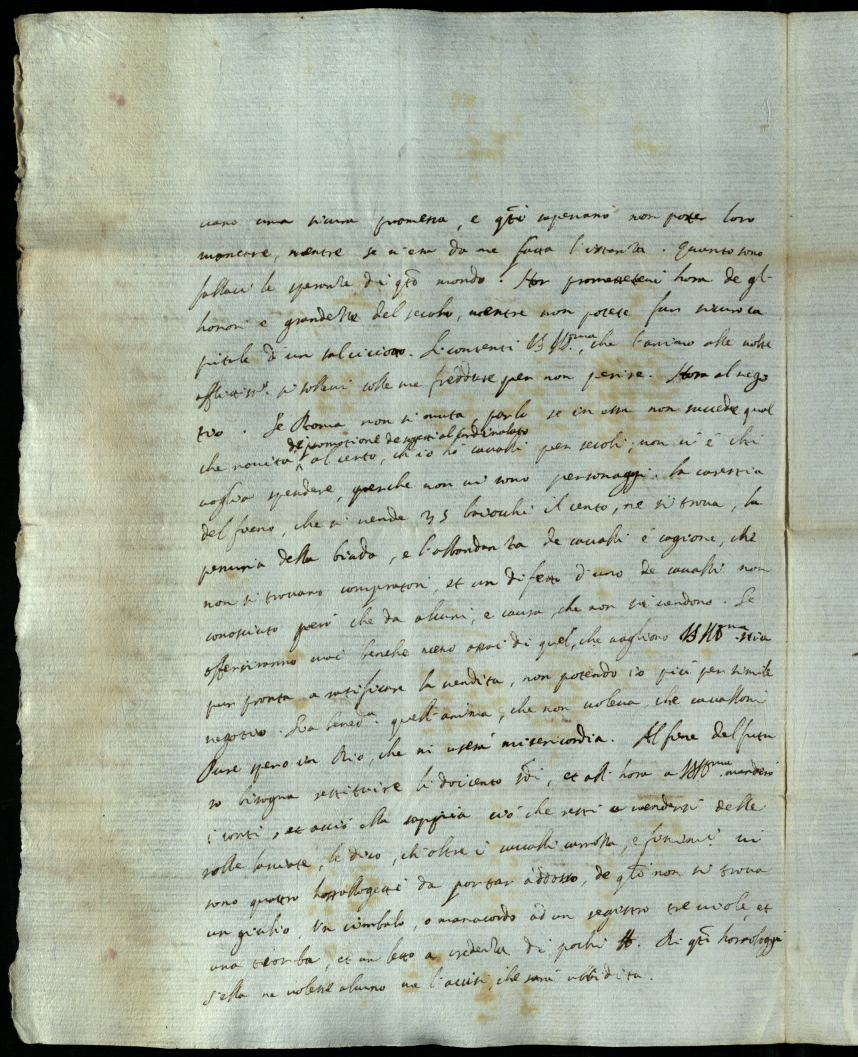 vano una sicura promessa, e q.ti sapevano non poter loro
mancare, mentre se n'era da me fatta l'istanza. Quanto sono
fallaci le speranze di q.to mondo. Hor promettetevi hora de gl'
honori e grandezze del secolo, mentre non potete far sicurezza
di un salciccione. Si contenti V.S. Ill.ma, che l'animo alle volte
si sollevi colle me freddure per non perire. Hora al nego
tio. Se Roma non si muta, se in essa non succede qual
de promotione de soggetti al Cardinalato
che novità al certo, ch'io ho cavalli per secoli, non vi è chi
voglia spendere, perche non vi sono personaggi. la carestia
del fieno, che si vende 35 baiocchi il cento, ne si trova, la
penuria della biada, e l'abbondanza de cavalli è cagione, che
non si trovano compratori, et un difetto d'uno de cavalli non
conosciuto però che da alcuni, e causa, che non si vendono. Se
offeriranno mai benche meno assai di quel, che vagliono V.S. Ill.ma stia
pur pronta a ratificare la vendita, non potendo io più per simile
negotio. Sia bened.a quell'anima, che non voleva, che cavalloni
Pure spero in Dio, che mi userà misericordia. Al fine del futu
ro bisogna restituire li doicento , et all'hora a V.S. Ill.ma manderò
i conti, et acciò ella sappia ciò che resti a vendersi delle
robbe lasciate, le dico, ch'oltre i cavalli carrozza, e finimenti vi
sono quattro horologetti da portar addosso, de q.ti non si trova
un giulio, un cimbalo, o manacordo ad un registro tre viole, et
una teorba, et un letto a credenza di pochi . Di q.ti horologgi
s'ella ne volesse alcuno me l'avvisi, che sarà ubbidita.